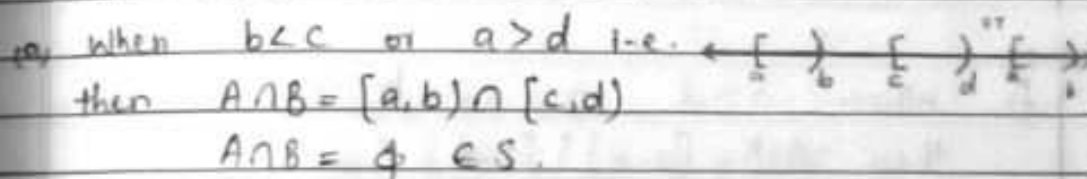 (a) When b<c or a>d i-e. [ a ) b [ c ) d or [ a ) b
then A∩B = [a,b) ∩ [c,d)
A∩B = ϕ ∈ S.